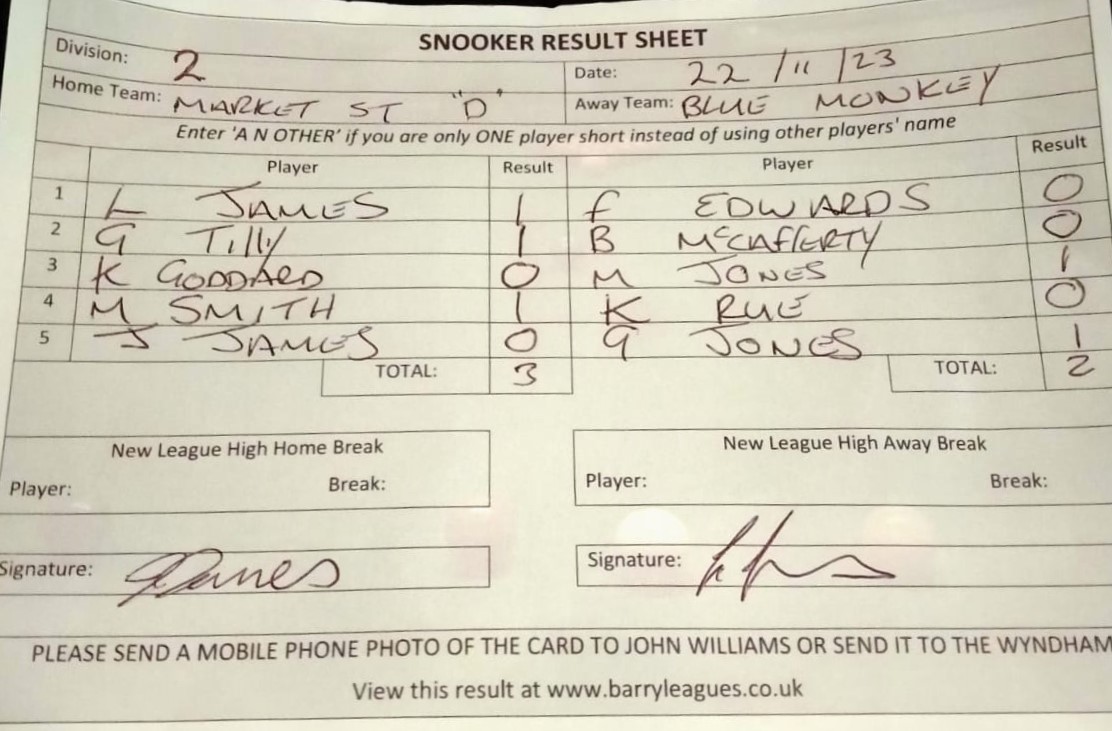 SNOOKER RESULT SHEET
Division: 2 Date: 22/11/23
Home Team: MARKET ST "D" Away Team: BLUE MONKEY
Enter 'A N OTHER' if you are only ONE player short instead of using other players' name
Player Result Player Result
1 L JAMES 1 F EDWARDS 0
2 G TILLY 1 B McCAFFERTY 0
3 K GODDARD 0 M JONES 1
4 M SMITH 1 K RUE 0
5 J JAMES 0 G JONES 1
TOTAL: 3 TOTAL: 2
New League High Home Break New League High Away Break
Player: Break: Player: Break:
Signature: Signature:
PLEASE SEND A MOBILE PHONE PHOTO OF THE CARD TO JOHN WILLIAMS OR SEND IT TO THE WYNDHAM
View this result at www.barryleagues.co.uk